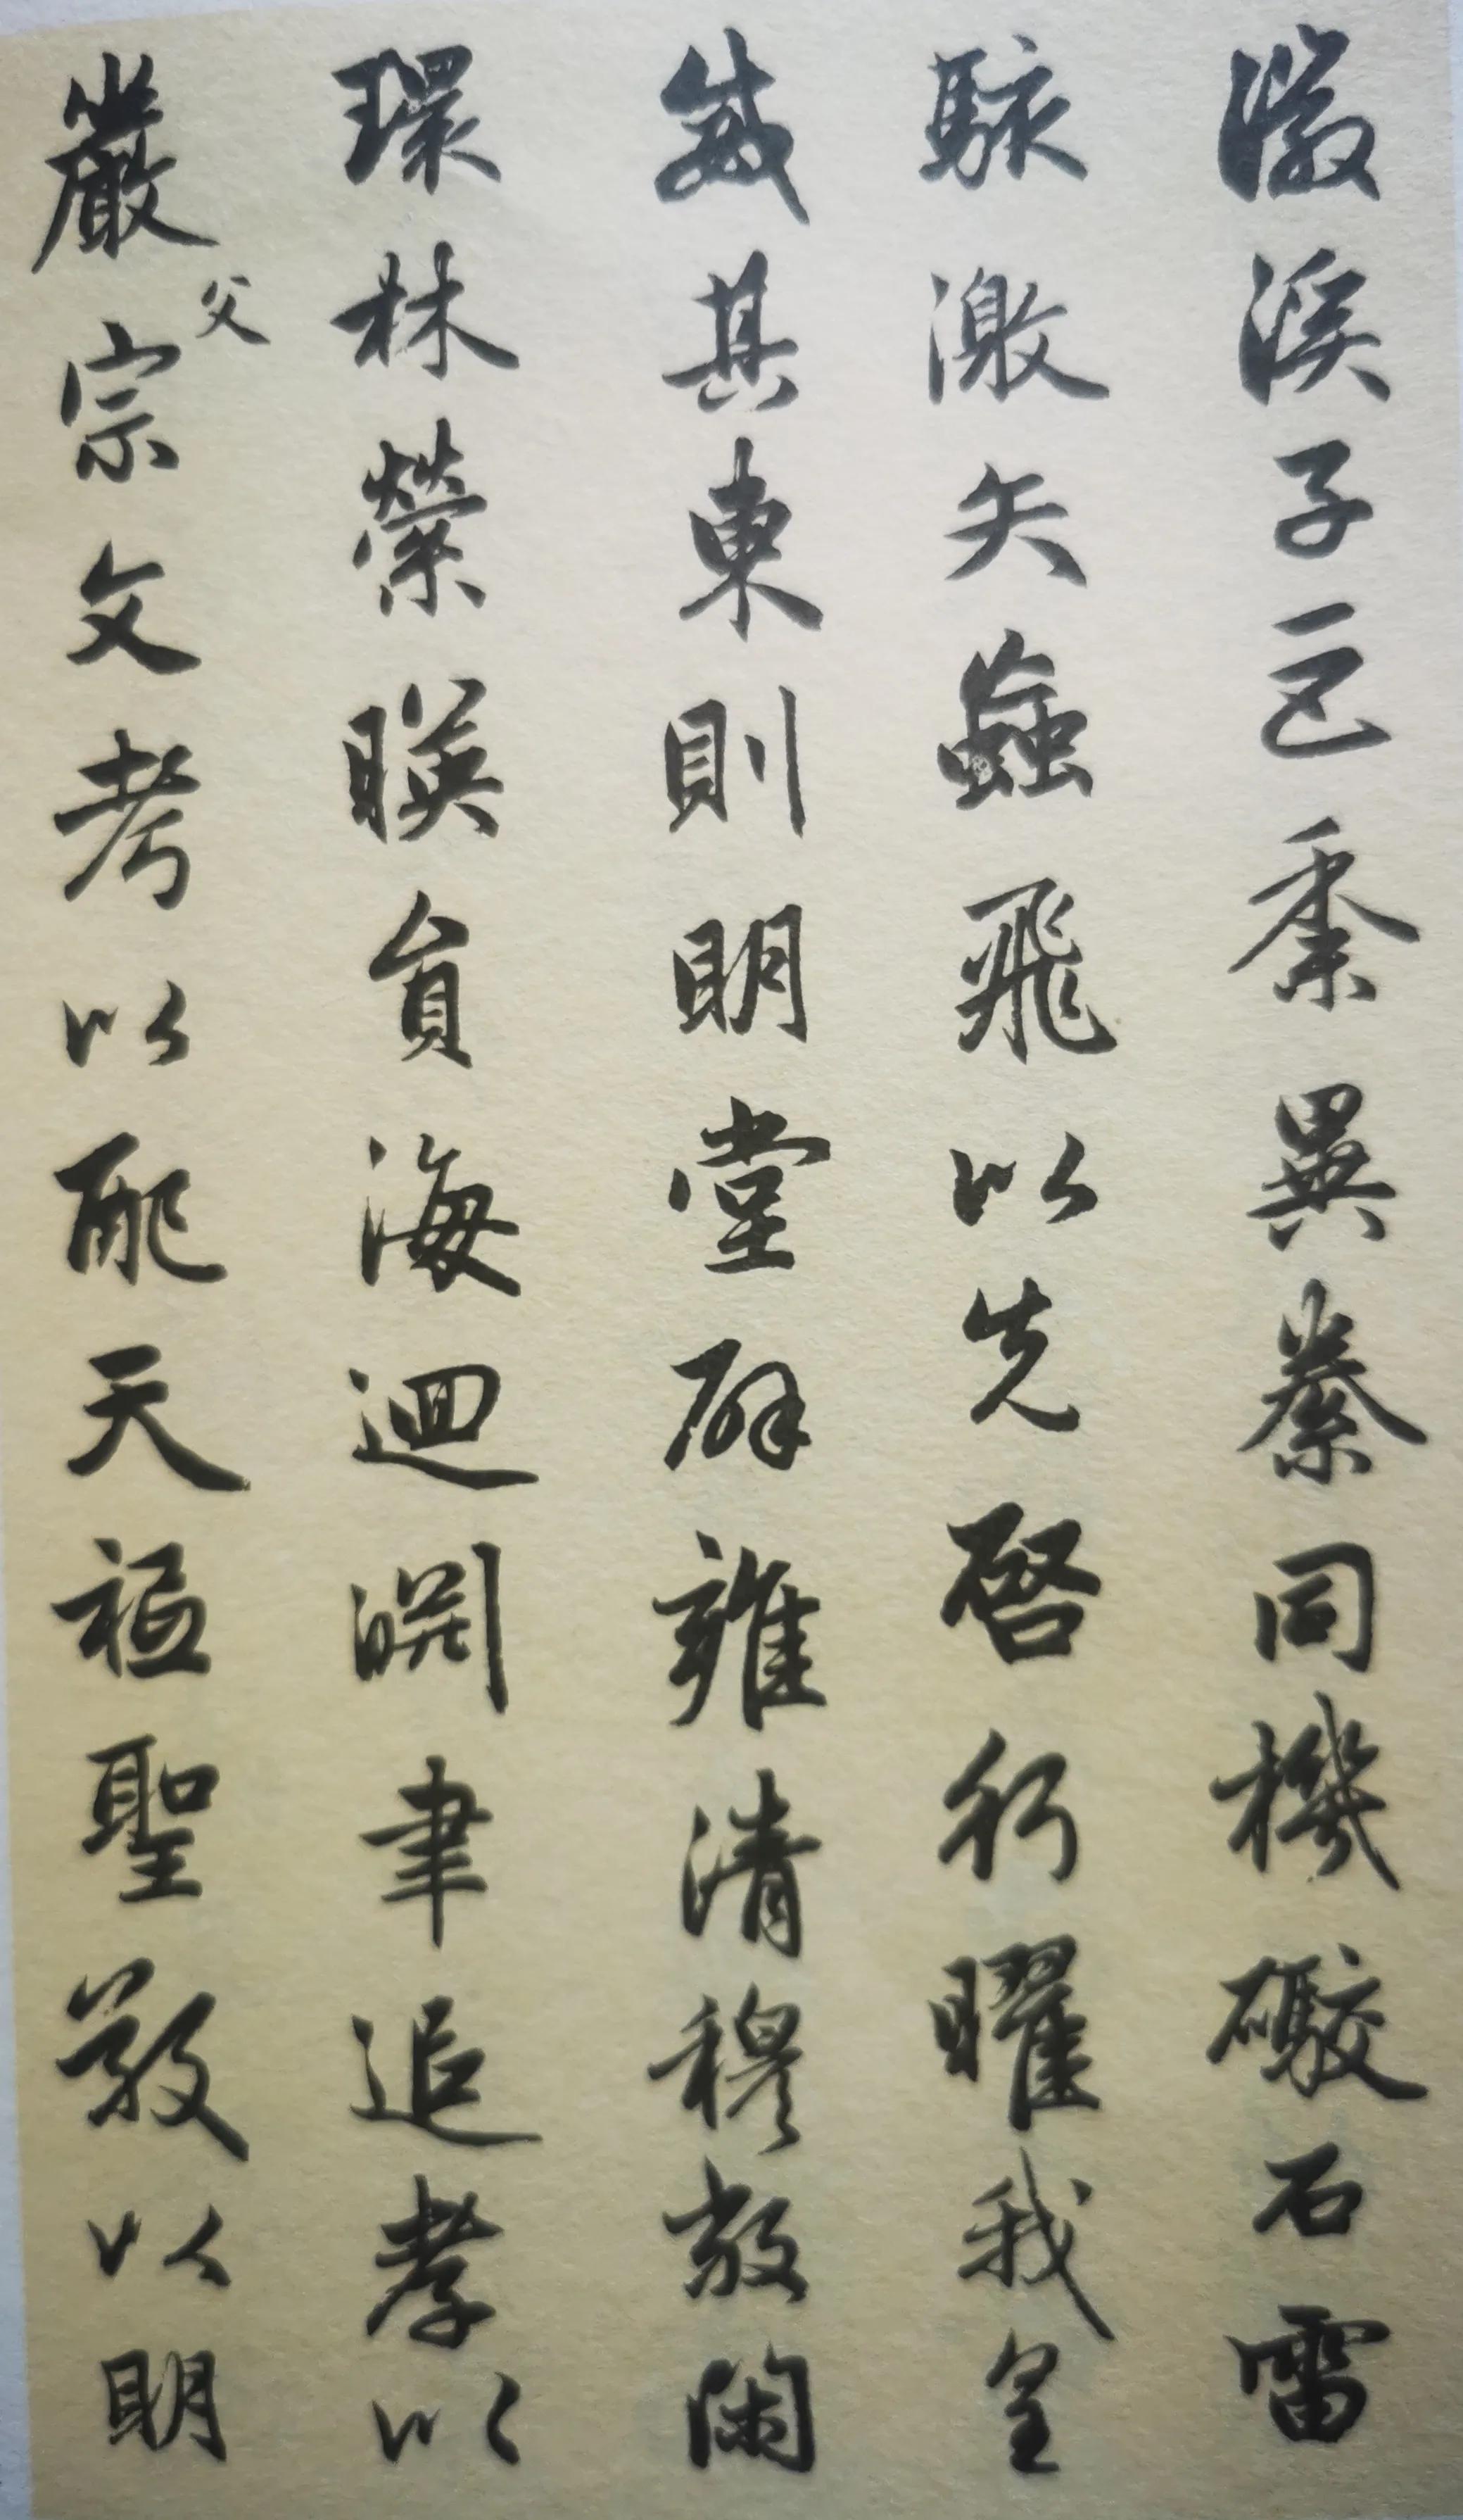 徽溪子巨黍異絭同機礮石雷
駭激矢蝱飛以先啓行曜我皇
威其東則明堂辟雍清穆敞閑
環林縈暎員海迴淵聿追孝以
嚴父宗文考以配天祗聖敬以明